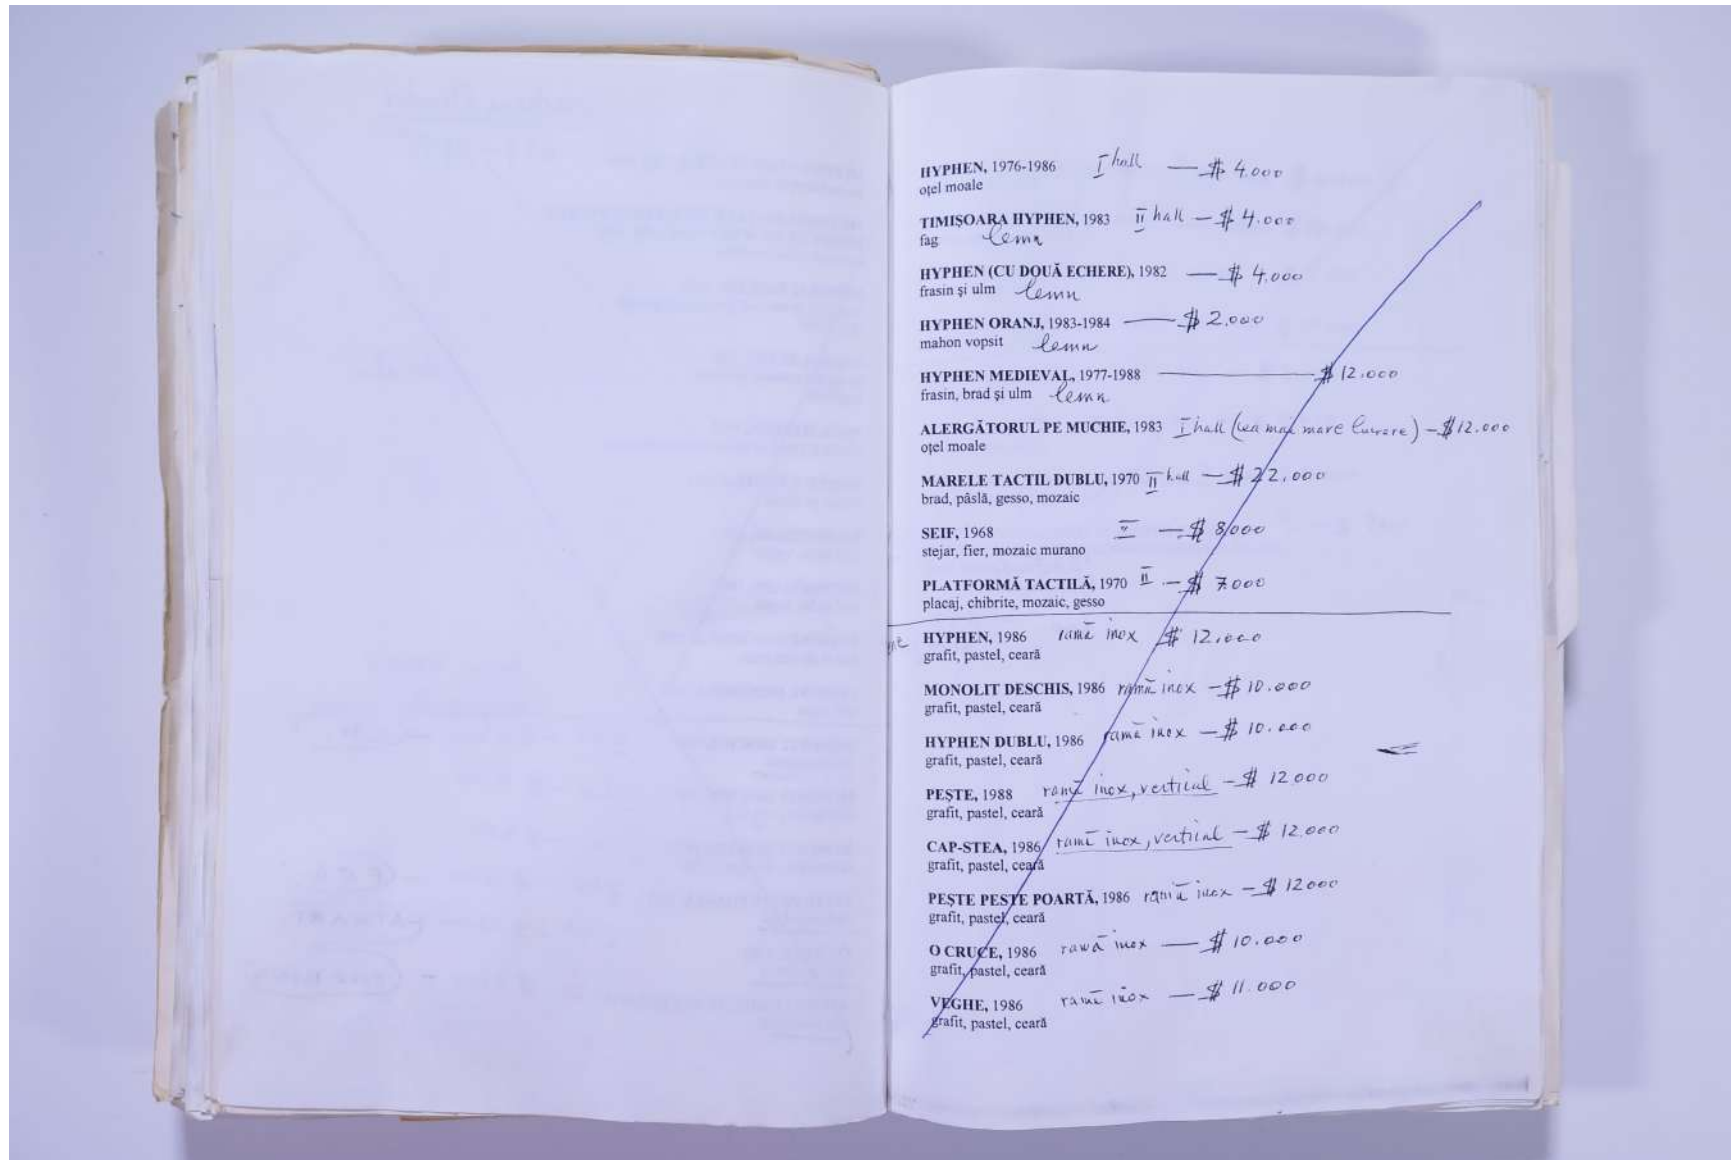 HYPHEN, 1976-1986 I hall — $ 4.000
oțel moale
TIMIȘOARA HYPHEN, 1983 II hall — $ 4.000
fag lemn
HYPHEN (CU DOUĂ ECHERE), 1982 — $ 4.000
frasin și ulm lemn
HYPHEN ORANJ, 1983-1984 — $ 2.000
mahon vopsit lemn
HYPHEN MEDIEVAL, 1977-1988 — $ 12.000
frasin, brad și ulm lemn
ALERGĂTORUL PE MUCHIE, 1983 I hall (cea mai mare lucrare) — $ 12.000
oțel moale
MARELE TACTIL DUBLU, 1970 II hall — $ 22.000
brad, pâslă, gesso, mozaic
SEIF, 1968 II — $ 8.000
stejar, fier, mozaic murano
PLATFORMĂ TACTILĂ, 1970 II — $ 7.000
placaj, chibrite, mozaic, gesso
HYPHEN, 1986 ramă inox $ 12.000
grafit, pastel, ceară
MONOLIT DESCHIS, 1986 ramă inox — $ 10.000
grafit, pastel, ceară
HYPHEN DUBLU, 1986 ramă inox — $ 10.000
grafit, pastel, ceară
PEȘTE, 1988 ramă inox, vertical — $ 12.000
grafit, pastel, ceară
CAP-STEA, 1986 ramă inox, vertical — $ 12.000
grafit, pastel, ceară
PEȘTE PESTE POARTĂ, 1986 ramă inox — $ 12000
grafit, pastel, ceară
O CRUCE, 1986 ramă inox — $ 10.000
grafit, pastel, ceară
VEGHE, 1986 ramă inox — $ 11.000
grafit, pastel, ceară